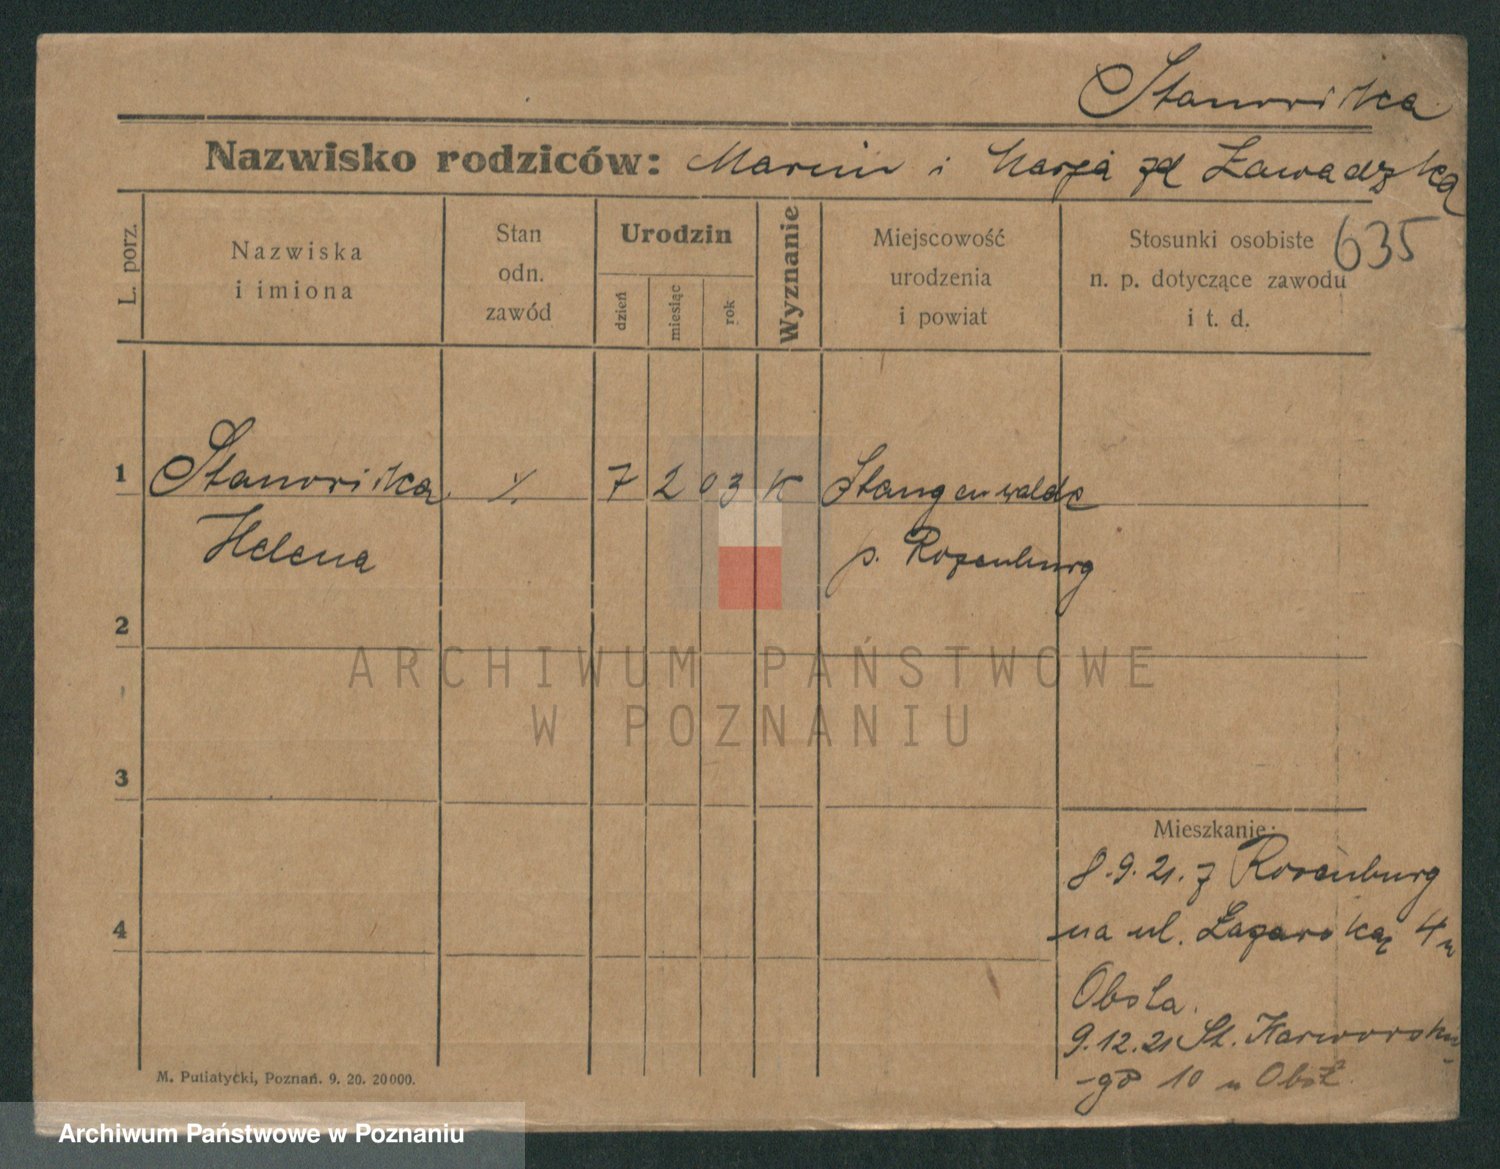 Stanowska
Nazwisko rodziców: Marcin i Marja zd Zawadzka
635
L. porz.
Nazwiska
i imiona
Stan
odn.
zawód
Urodzin
dzień
miesiąc
rok
Wyznanie
Miejscowość
urodzenia
i powiat
Stosunki osobiste
n. p. dotyczące zawodu
i t. d.
1
Helena
7 2 03 K
Stangenwalde
p. Rosenburg
2
3
4
ARCHIWUM PAŃSTWOWE
W POZNANIU
Mieszkanie:
8.9.21. z Rosenburg
na ul. Łazarską 4 u
Obsta.
9.12.21 St. Karwowskie-
-go 10 u Obst
M. Putiatycki, Poznań. 9. 20. 20000.
Archiwum Państwowe w Poznaniu